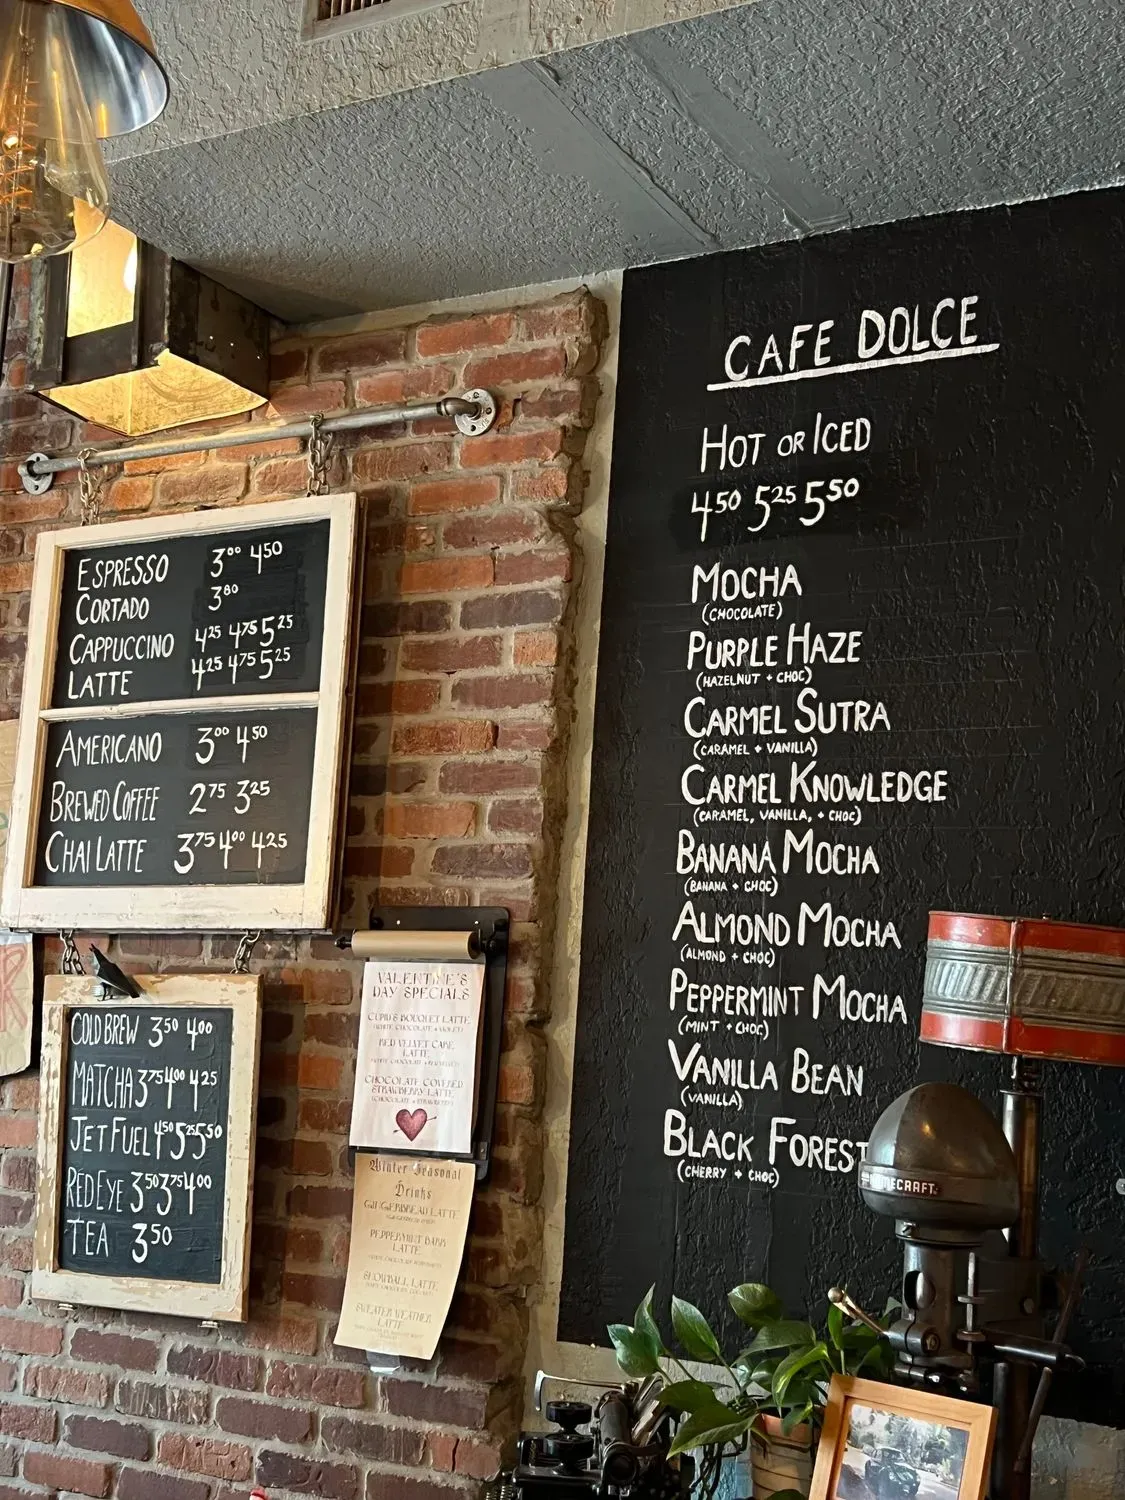 ESPRESSO 3⁰⁰ 4⁵⁰
CORTADO 3⁸⁰
CAPPUCCINO 4²⁵ 4⁷⁵ 5²⁵
LATTE 4²⁵ 4⁷⁵ 5²⁵
AMERICANO 3⁰⁰ 4⁵⁰
BREWED COFFEE 2⁷⁵ 3²⁵
CHAI LATTE 3⁷⁵ 4⁰⁰ 4²⁵
COLD BREW 3⁵⁰ 4⁰⁰
MATCHA 3⁷⁵ 4⁰⁰ 4²⁵
JET FUEL 4⁵⁰ 5²⁵ 5⁵⁰
RED EYE 3⁵⁰ 3⁷⁵ 4⁰⁰
TEA 3⁵⁰
VALENTINE'S
DAY SPECIALS
CUPID'S BOUQUET LATTE
(WHITE CHOCOLATE + VIOLET)
RED VELVET CAKE
LATTE
CHOCOLATE COVERED
STRAWBERRY LATTE
(CHOCOLATE + STRAWBERRY)
Winter Seasonal
Drinks
GINGERBREAD LATTE
PEPPERMINT BARK
LATTE
SNOWBALL LATTE
SWEATER WEATHER
LATTE
CAFE DOLCE
HOT OR ICED
4⁵⁰ 5²⁵ 5⁵⁰
MOCHA
(CHOCOLATE)
PURPLE HAZE
(HAZELNUT + CHOC)
CARMEL SUTRA
(CARAMEL + VANILLA)
CARMEL KNOWLEDGE
(CARAMEL, VANILLA, + CHOC)
BANANA MOCHA
(BANANA + CHOC)
ALMOND MOCHA
(ALMOND + CHOC)
PEPPERMINT MOCHA
(MINT + CHOC)
VANILLA BEAN
(VANILLA)
BLACK FOREST
(CHERRY + CHOC)